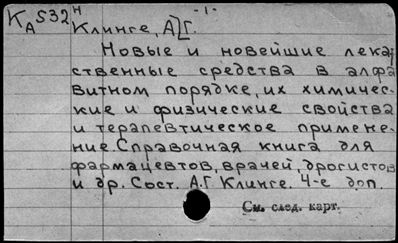 -1-
КА532н Клинге, А[Г.
Новые и новейшие лека
ственные средства в алфа
витном порядке, их химичес-
кие и физические свойства
и терапевтическое примене-
ние. Справочная книга для
фармацевтов, врачей, дрогистов
и др. Сост. А.Г. Клинге. 4-е доп.
См. след. карт.